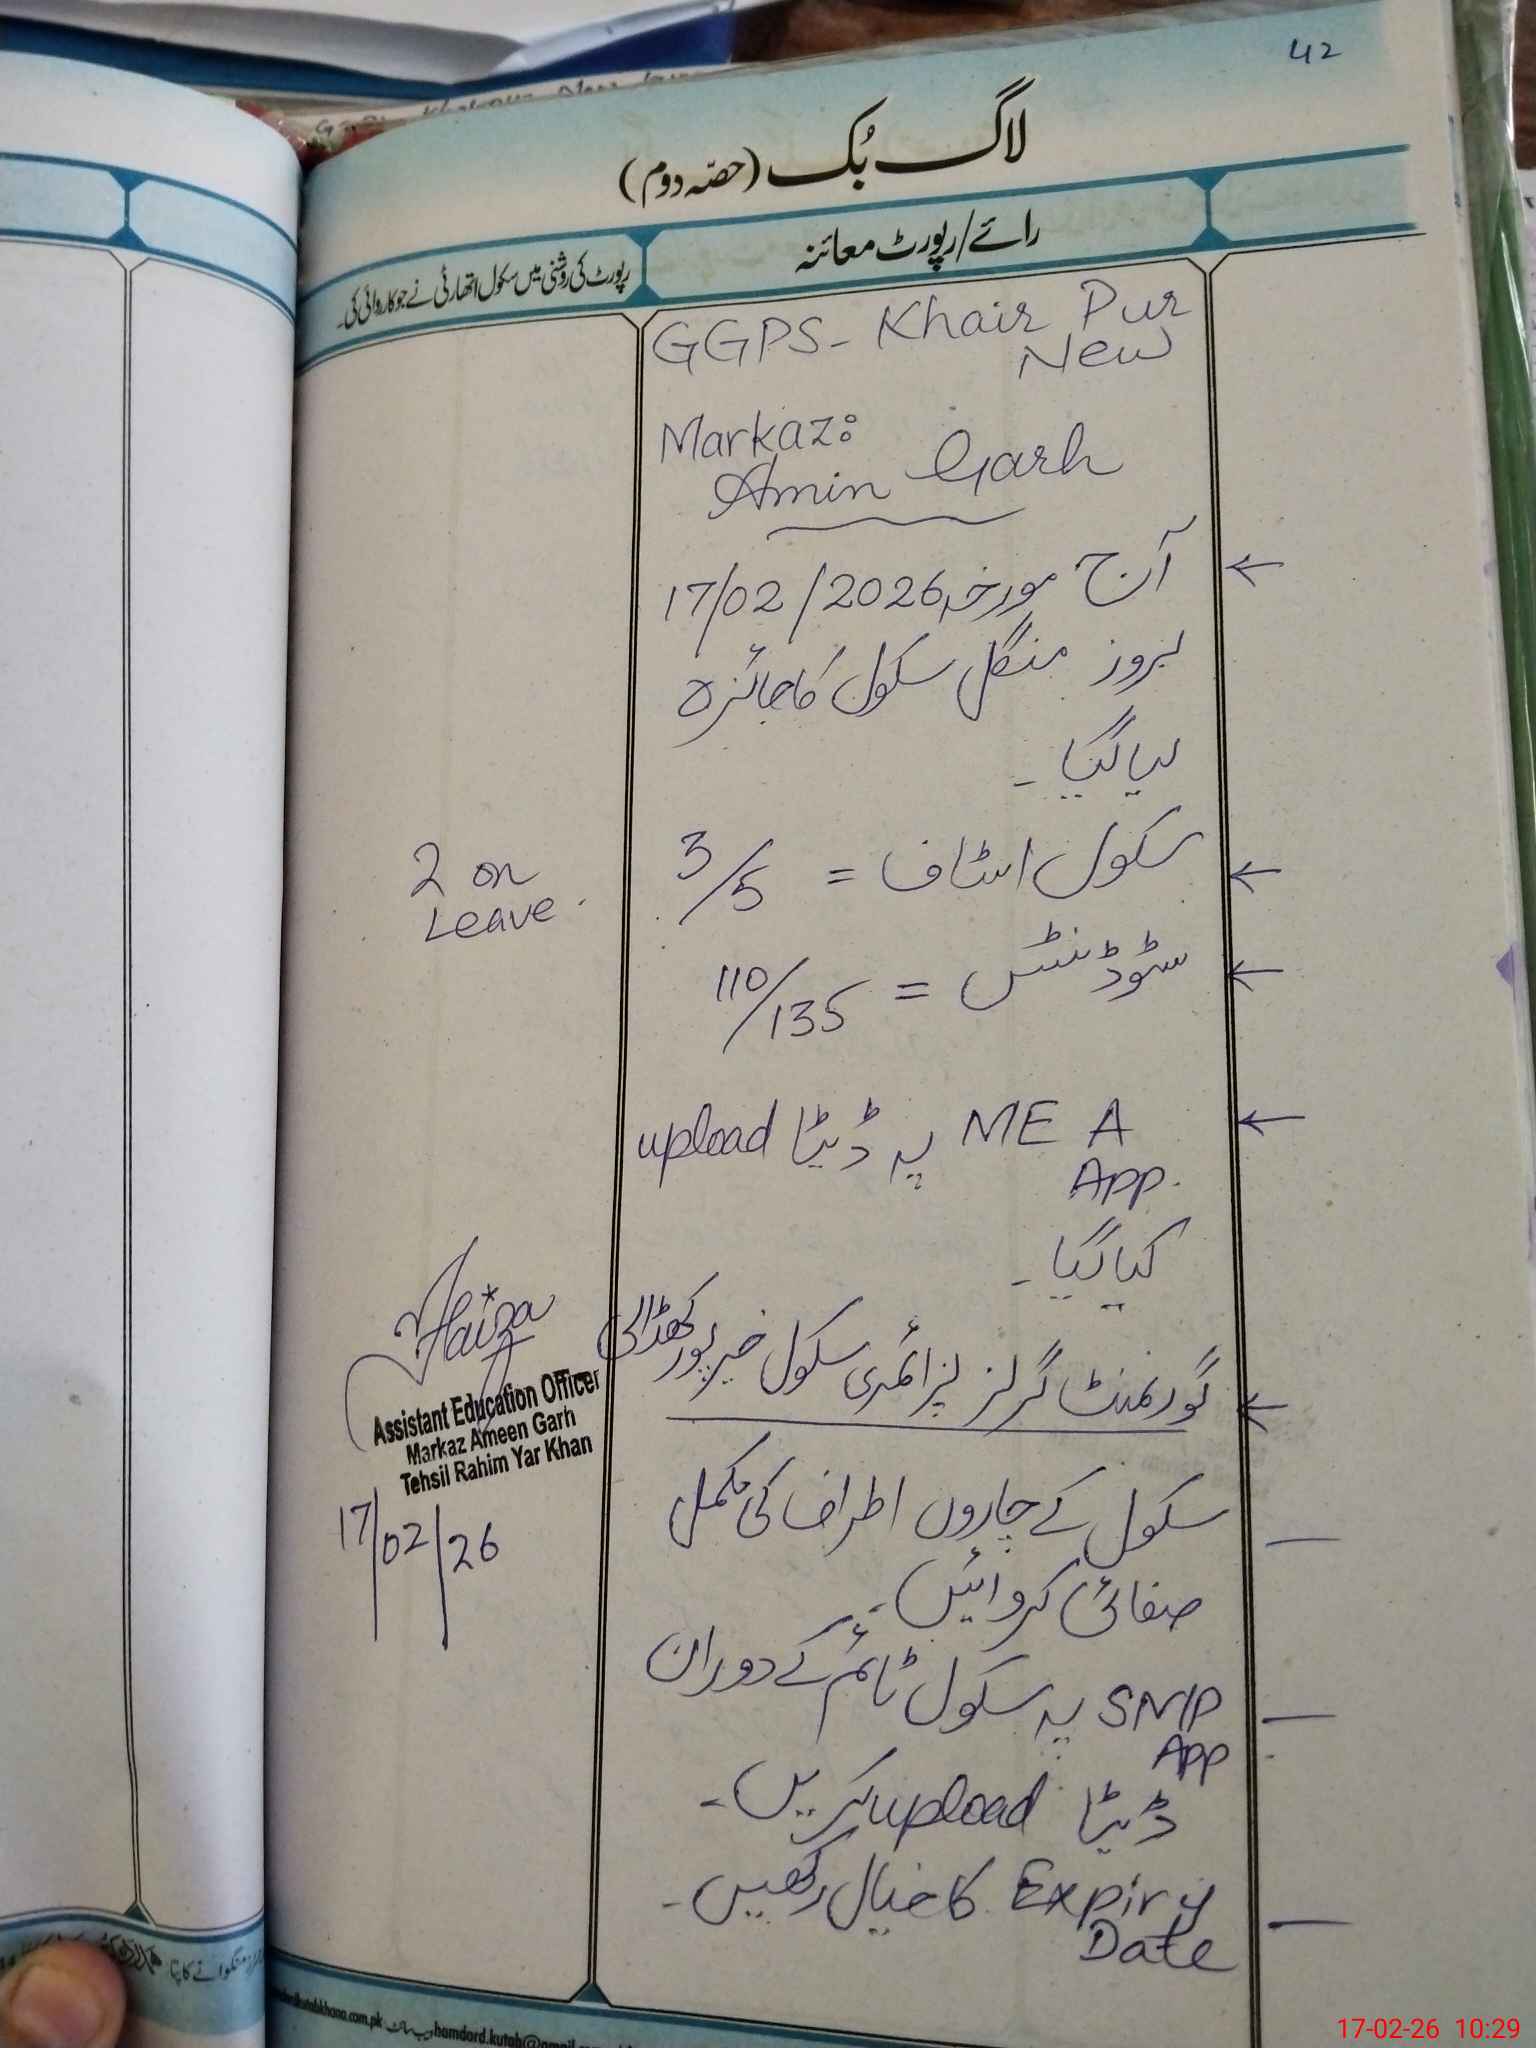 42
لاگ بُک (حصّہ دوم)
رائے/رپورٹ معائنہ
رپورٹ کی روشنی میں سکول اتھارٹی نے جو کاروائی کی۔
GGPS- Khair Pur
New
Markaz:
Amin Garh
آج مورخہ 17/02/2026
بروز منگل سکول کا جائزہ
لیا گیا۔
سکول اسٹاف = 3/5
2 on
Leave.
سٹوڈنٹس = 110/135
MEA پہ ڈیٹا upload
App.
کیا گیا۔
گورنمنٹ گرلز پرائمری سکول خیر پور کھڈالی
سکول کے چاروں اطراف کی مکمل
صفائی کروائیں۔
SMP پہ سکول ٹائم کے دوران
App
ڈیٹا upload کریں۔
Expiry کا خیال رکھیں۔
Date
Faiza
Assistant Education Officer
Markaz Ameen Garh
Tehsil Rahim Yar Khan
17/02/26
17-02-26 10:29